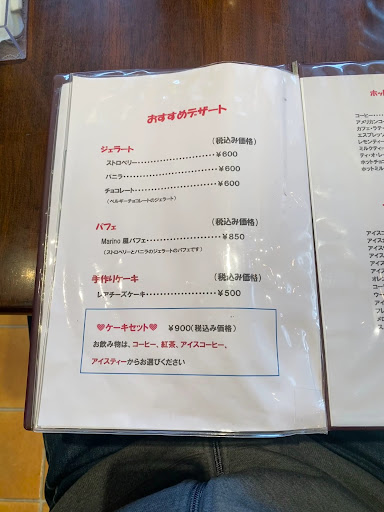 おすすめデザート
ジェラート (税込み価格)
ストロベリー・・・・・・・・・・・・・・・・・・¥600
バニラ・・・・・・・・・・・・・・・・・・・・・・¥600
チョコレート・・・・・・・・・・・・・・・・・・¥600
(ベルギーチョコレートのジェラート)
パフェ (税込み価格)
Marino 風パフェ・・・・・・・・・・・・・・・¥850
(ストロベリーとバニラのジェラートのパフェです)
手作りケーキ (税込み価格)
レアチーズケーキ・・・・・・・・・・・・・・¥500
♥ケーキセット♥ ¥900(税込み価格)
お飲み物は、コーヒー、紅茶、アイスコーヒー、
アイスティーからお選びください
ホッ
コーヒー・・・
アメリカンコー
カフェ・ラテ・
エスプレッソ
レモンティー
ミルクティー・
ティ・オ・レ・
ホットチョコ
ホットミル
アイスコ
アイスカ
アイス
アイス
アイス